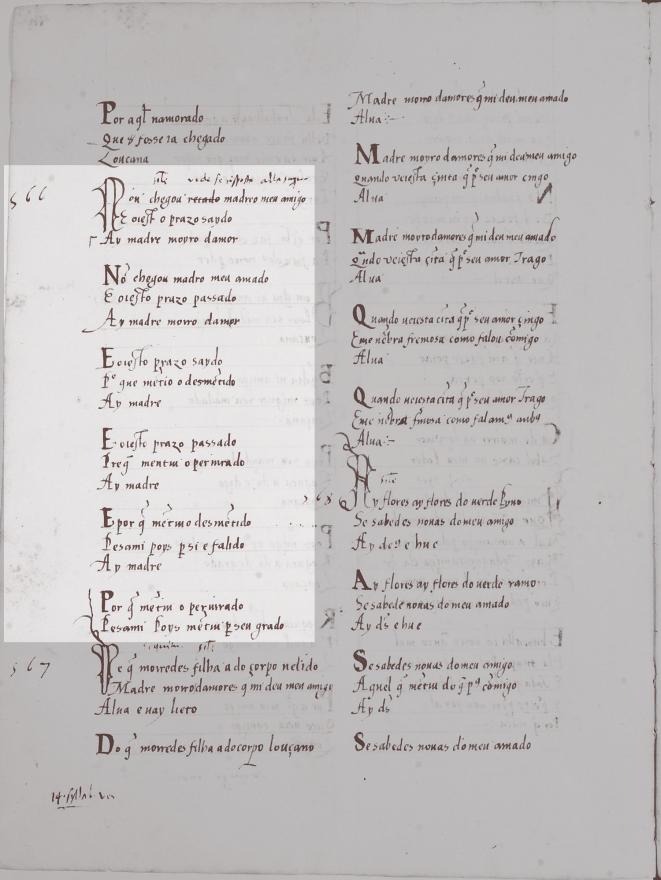 Por aql̃ namorado
Que ẏ fosse ia chegado
Louçana
566
Nõ uĩ chegou madre o meu amigo
E oieſt o prazo saydo
Ay madre moyro damor
Nõ chegou madre meu amado
E oieſto prazo passado
Ay madre moiro damor
E oieſto prazo saydo
Por que mẽtio o desmẽtido
Ay madre
E oieſto prazo passado
Porq̃ mentiu o periurado
Ay madre
E por q̃ mẽtiuo desmẽtido
Pesami poys p si e falido
Ay madre
Por q̃ mẽtiu o periurado
Pesami poys mẽtiu p seu grado
567
De q̃ morredes filha a do corpo uelido
Madre moyrodamores q̃ mi deu meu amigo
Alua e uay liero
Do q̃ morredes filha a docorpo louçano
Madre moyro damores q̃ mi deu meu amado
Alua
Madre moyro damores q̃ mi deumeu amigo
Quando ueiesta çinta q̃ pᵒ seu amor çingo
Alua
Madre moyrodamores q̃ mi deu meu amado
Qũdo ueiesta çĩta q̃ pᵒ seu amor Trago
Alua
Quando ueiesta cĩta q̃ pᵒ seu amor çingo
Eme nẽbra fremosa como falou cõmigo
Alua
Quando ueiesta cĩta q̃ pᵒ seu amor Trago
Eme nẽbra fmosa como falamꝯ anbꝯ
Alua
568
Ay flores ay flores do uerde pyno
Se sabedes nouas do meu amigo
Ay deꝯ e hu e
Ay flores ay flores do uerde ramo
Se sabedes nouas do meu amado
Ay d̃s e hu e
Se sabedes nouas do meu amigo
Aquel q̃ mẽtiu do q̃ pᵒˢ cõmigo
Ay d̃s
Se sabedes nouas do meu amado